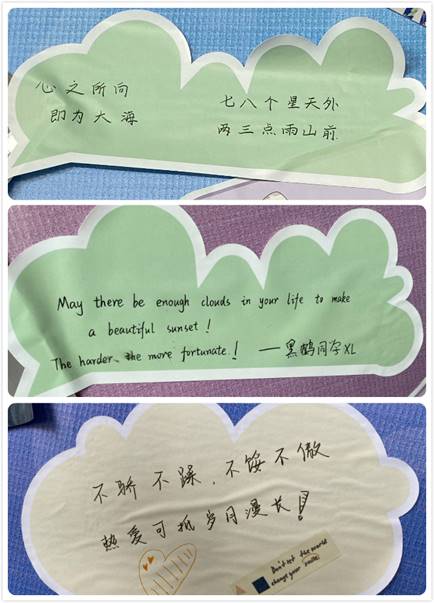 心之所向
即为大海
七八个星天外
两三点雨山前
May there be enough clouds in your life to make
a beautiful sunset!
The harder, the more fortunate!
——黑鹤同学XL
不骄不躁，不馁不傲
热爱可抵岁月漫长！
Don't let the world
change your smile!